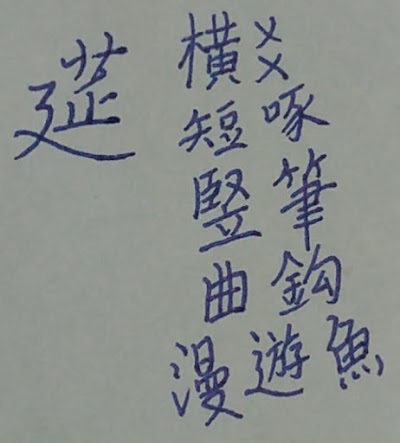 莚
横爻
短啄
竪筆
曲鈎
漫遊魚